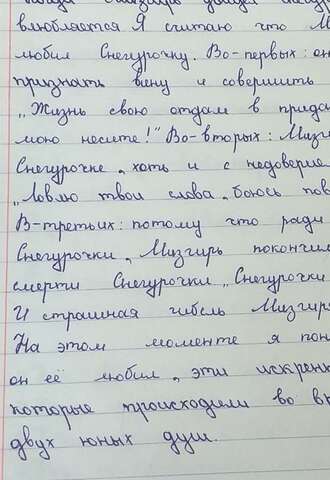 влюбляется Я считаю что М
любил Снегурочку. Во-первых: он
признать вину и совершить
„Жизнь свою отдам в прида
мою несите!" Во-вторых: Мизги
Снегурочке, хоть и с недоверие
„Ловлю твои слова, боюсь пов
В-третьих: потому что ради
Снегурочки, Мизгирь покончи
смерти Снегурочки „Снегурочки
И страшная гибель Мизгиря
На этом моменте я пон
он её любил, эти искрен
которые происходили во вн
двух юных душ.